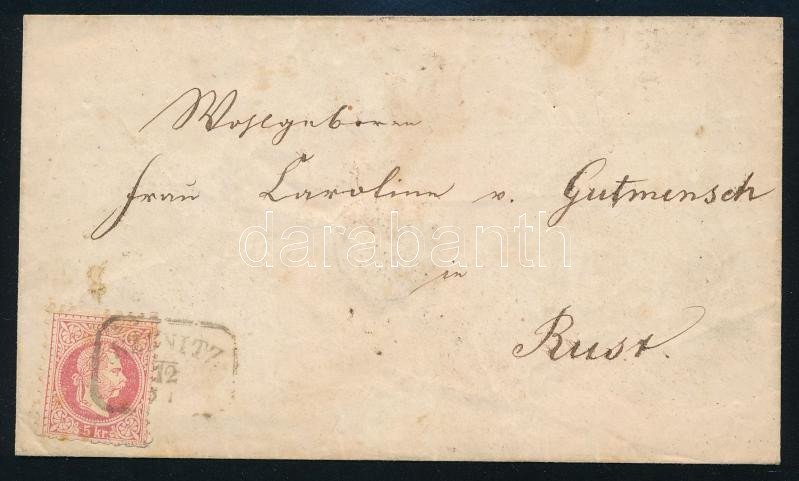 Wohlgeboren
Frau Caroline v. Gutmensch
in
Rust.
darabanth
12
5 kr.